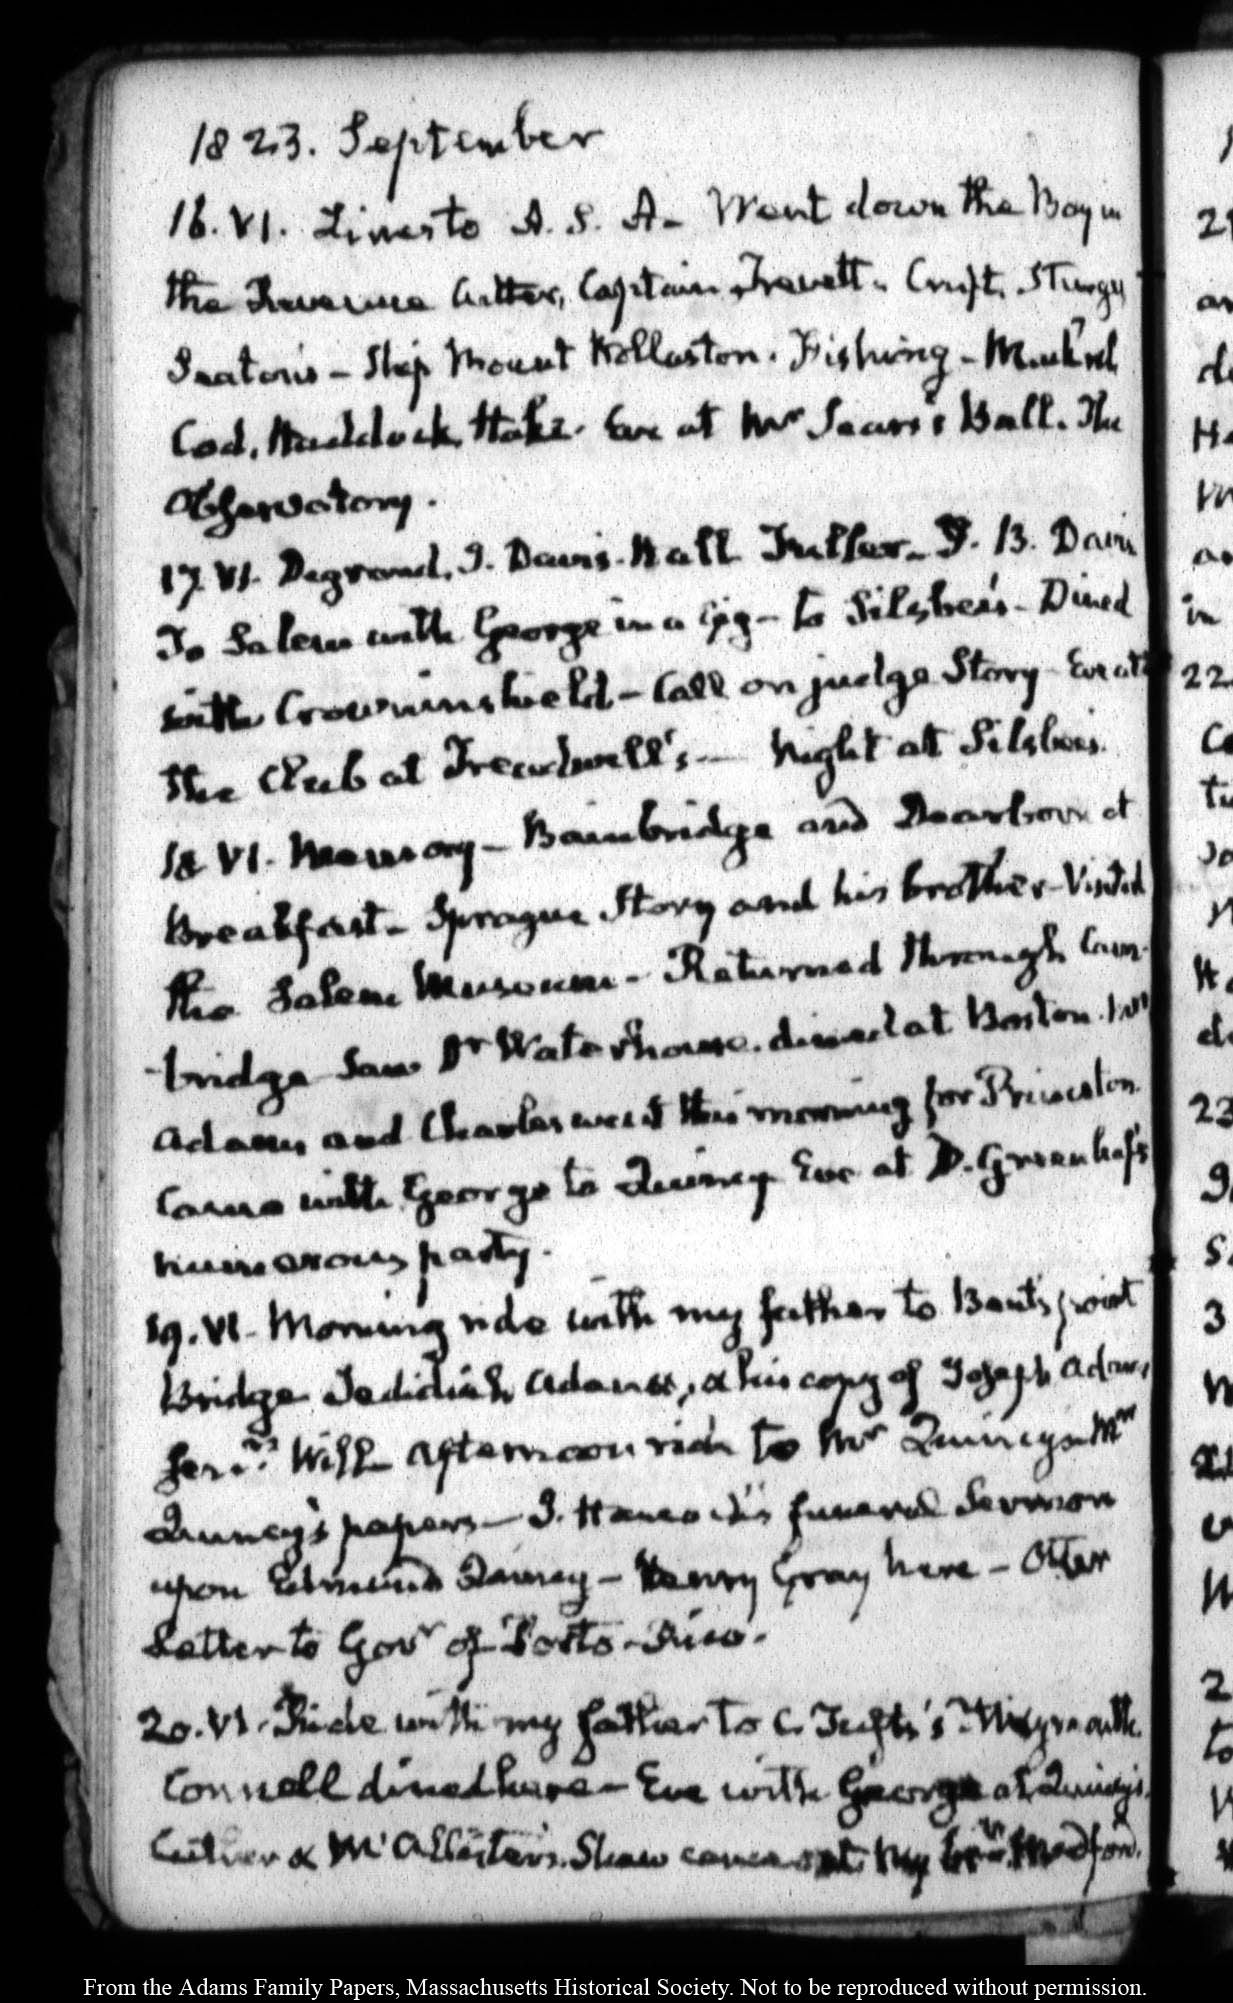 1823. September
16. VI. Lines to A. S. A— Went down the Bay in
the Revenue Cutter, Captain Trevett. Cruft, Sturgis
Seaton's — Ship Mount Wollaston. Fishing — Mack'rel,
Cod, Haddock, Hake. Eve at Mr Sears's Ball. The
Observatory.
17. VI. Degrand, I. Davis. Hall Fuller — J. B. Davis
To Salem with George in a Gig — to Silsbee's — Dined
with Crowninshield — Call on judge Story Eve at
the Club at Treadwell's — Night at Silsbee's.
18 VI. Memory — Bainbridge and Dearborn at
Breakfast — Sprague Story and his brother — Visited
the Salem Museum — Returned through Cam-
-bridge Saw Dr Waterhouse. dined at Boston. Mrs
Adams and Charles went this morning for Princeton.
Came with George to Quincy Eve at D. Greenleaf's
numerous party.
19. VI. Morning ride with my father to Bent's point
Bridge Jedidiah Adams, & his copy of Joseph Adams
Will Afternoon ride to Mr Quincy's
Quincy's papers — J. Hancock's funeral Sermon
upon Edmund Quincy — Henry Gray here — Otter
Letter to Govr of Porto-Rico.
20. VI. Ride with my father to C. Tufts's Weymouth.
Connell dined here — Eve with George at Quincy's.
& Shaw came out. My Medford.